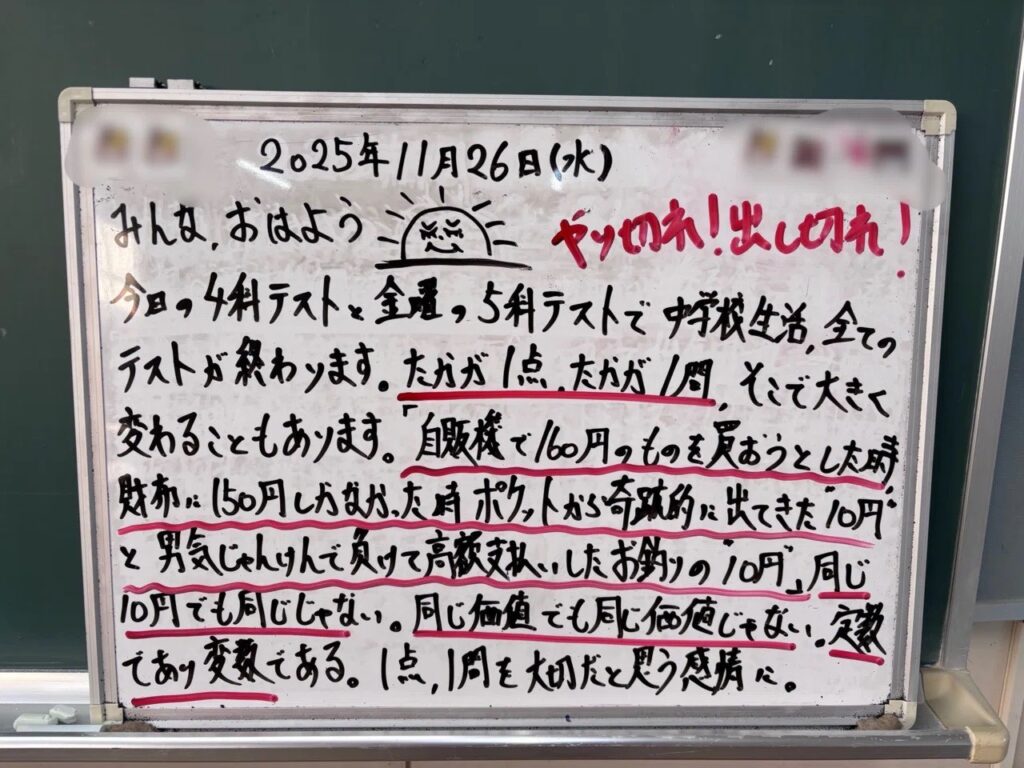 2025年11月26日(水)
みんな,おはよう
やり切れ!出し切れ!
今日の4科テストと金曜の5科テストで中学校生活,全ての
テストが終わります。たかが1点,たかが1問,そこで大きく
変わることもあります。「自販機で160円のものを買おうとした時
財布に150円しかなかった時ポケットから奇蹟的に出てきた"10円"
と男気じゃんけんで負けて高額支払いしたお釣りの"10円"」同じ
10円でも同じじゃない。同じ価値でも同じ価値じゃない。定数
であり変数である。1点,1問を大切だと思う感情に。